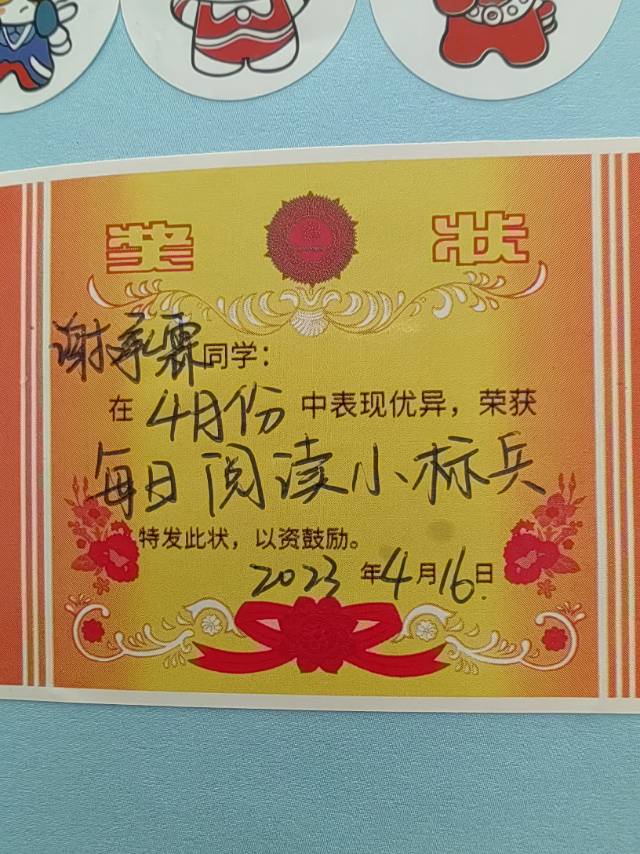 奖状
谢承霖同学：
在4月份中表现优异，荣获
每日阅读小标兵
特发此状，以资鼓励。
2023年4月16日